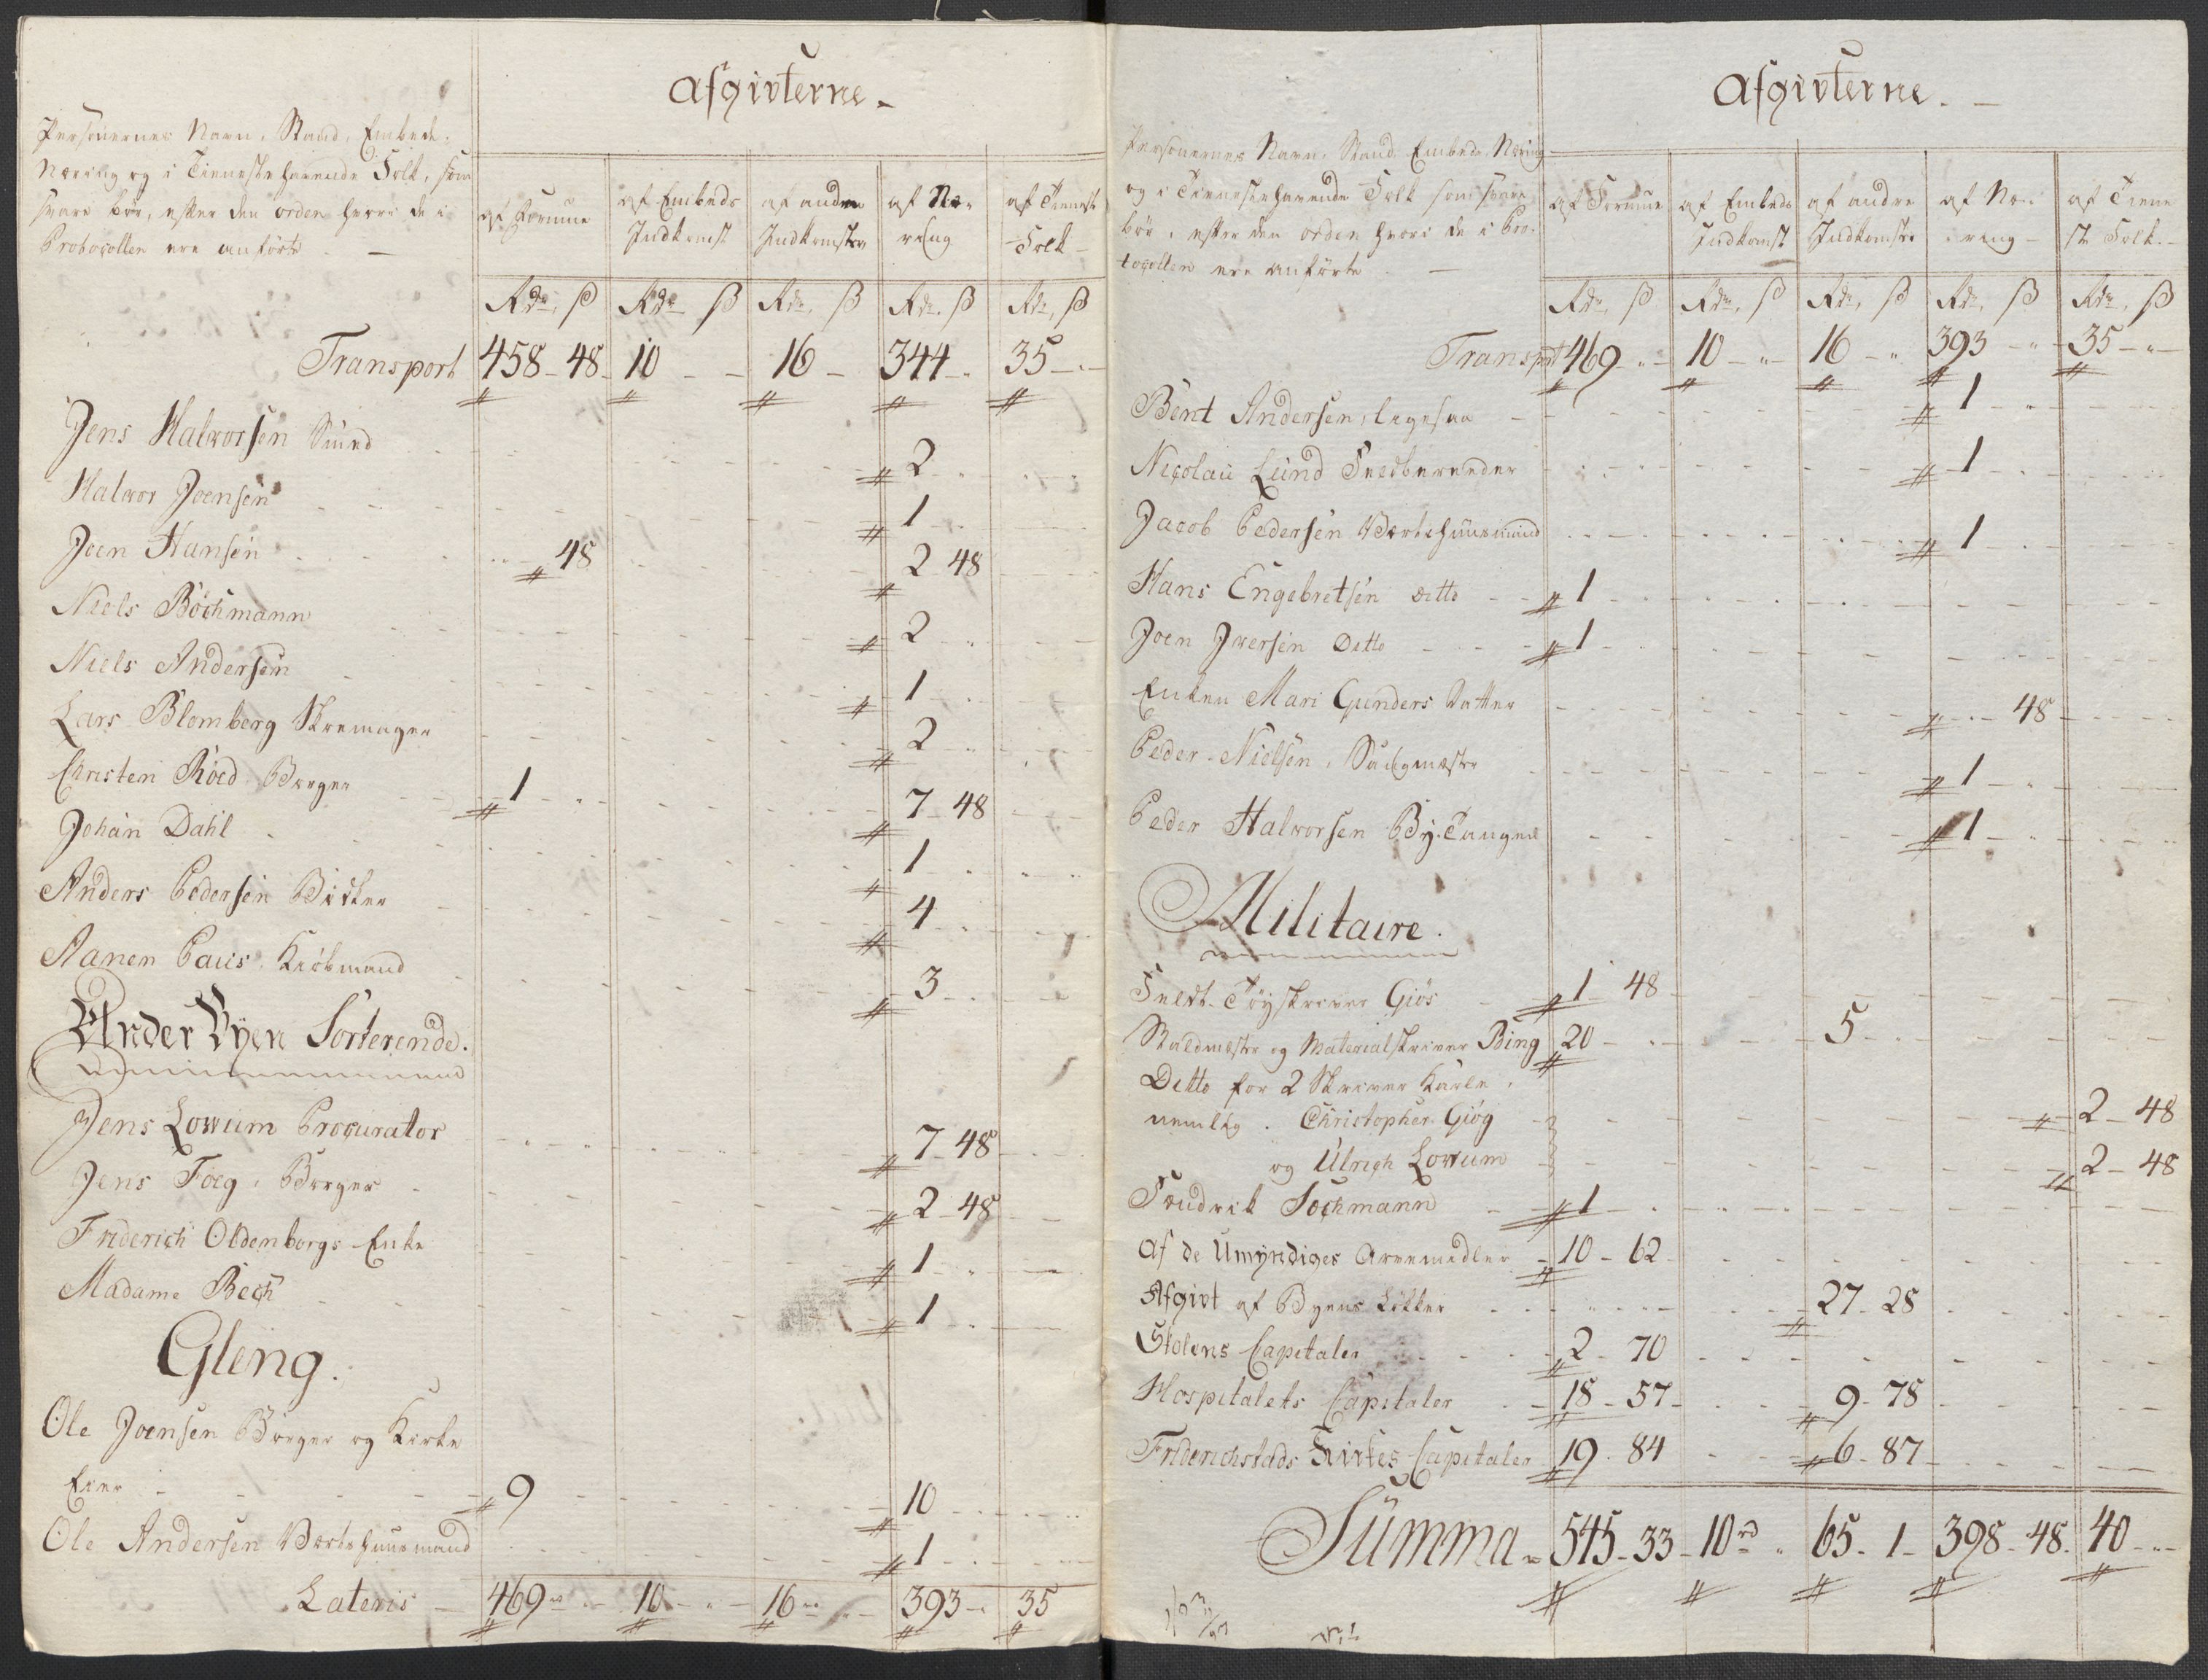 Afgivterne
Personernes Navn, Stand, Embede,
Næring og i Tieneste havende Folk, som
svare bør, efter den orden hvori de i
Protocollen ere anførte
af Formue
af Embeds Indkomst
af andre Indkomster
af Næring
af Tieneste Folk
Rdr. ß Rdr. ß Rdr. ß Rdr. ß Rdr. ß
Transport 458 - 48 10 - - 16 - 344 - 35 - -
Jens Halvorsen Smed 2
Halvor Joensen 1
Joen Hansen 48 2 - 48
Niels Böchmann 2
Niels Andersen 1
Lars Blomberg Skremager 2
Christen Röed Borger 1 7 - 48
Johan Dahl 1
Anders Pedersen 4
Aanen Paus Kiöbmand 3
Under Byen Sorterende.
Jens Lowum Procurator 7 - 48
Jens Foeg, Borger 2 - 48
Friderich Oldenborgs Enke 1
Madame Bech 1
Gleng.
Ole Joensen Borger og Kirke
Eier 9 10
Ole Andersen Værtshuusmand 1
Lateris 469 - 10 - 16 - 393 - 35
Afgivterne.
Personernes Navn, Stand, Embede, Næring
og i Tieneste havende Folk som svare
bør, efter den orden hvori de i Pro-
tocollen ere anførte
af Formue
af Embeds Indkomst
af andre Indkomster
af Næring
af Tieneste Folk
Rdr. ß Rdr. ß Rdr. ß Rdr. ß Rdr. ß
Transport 469 - 10 - 16 - 393 - 35 -
Bent Andersen, ligesaa 1
Nicolau Lund Feldbereder 1
Jacob Pedersen Værtshuusmand 1
Hans Engebretsen ditto 1
Joen Iversen Ditto 1
Enken Mari Gunders Datter 48
Peder Nielsen, 1
Peder Halvorsen By-Tangen 1
Militaire.
Töyskriver Giös 1 - 48
og Materialskriver Bing 20 5
Ditto for 2 Skriver Karle,
nemlig. Christopher Giög 2 - 48
og Ulrich Lowum 2 - 48
Fredrick Sochmann 1
Af de Umyndiges Arvemidler 10 - 62
Afgivt af Byens Løkker 27 - 28
Skolens Capitaler 2 - 70
Hospitalets Capitaler 18 - 57 9 - 78
Friderichstads Kirkes Capitaler 19 - 84 6 - 87
Summa 545 - 33 - 10 rd 65 - 1 - 398 - 48 - 40 -